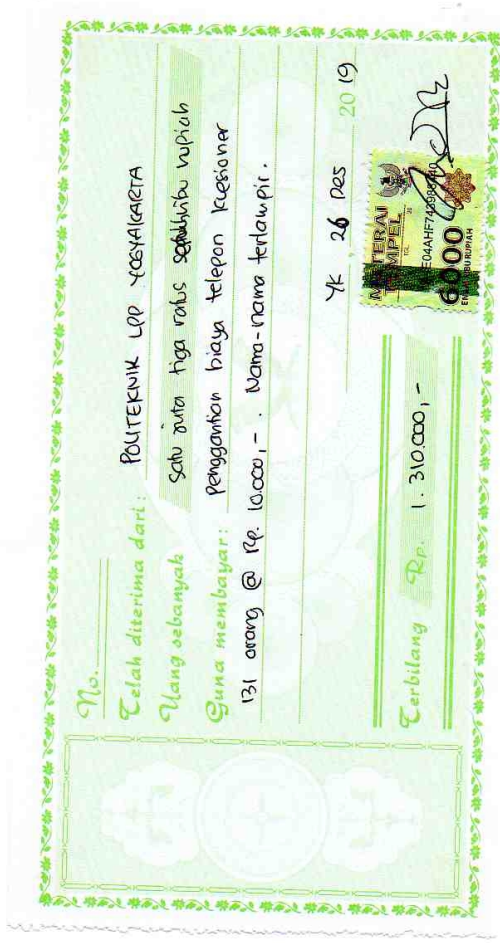 No.
Telah diterima dari : POLITEKNIK LPP YOGYAKARTA
Uang sebanyak Satu juta tiga ratus sepuluh ribu rupiah
Guna membayar : Penggantian biaya telepon kuesioner
131 orang @ Rp. 10.000,- . Nama-nama terlampir.
YK, 26 Des 2019
Terbilang Rp. 1.310.000,-
METERAI
TEMPEL
TGL 20
6000
ENAM RIBU RUPIAH